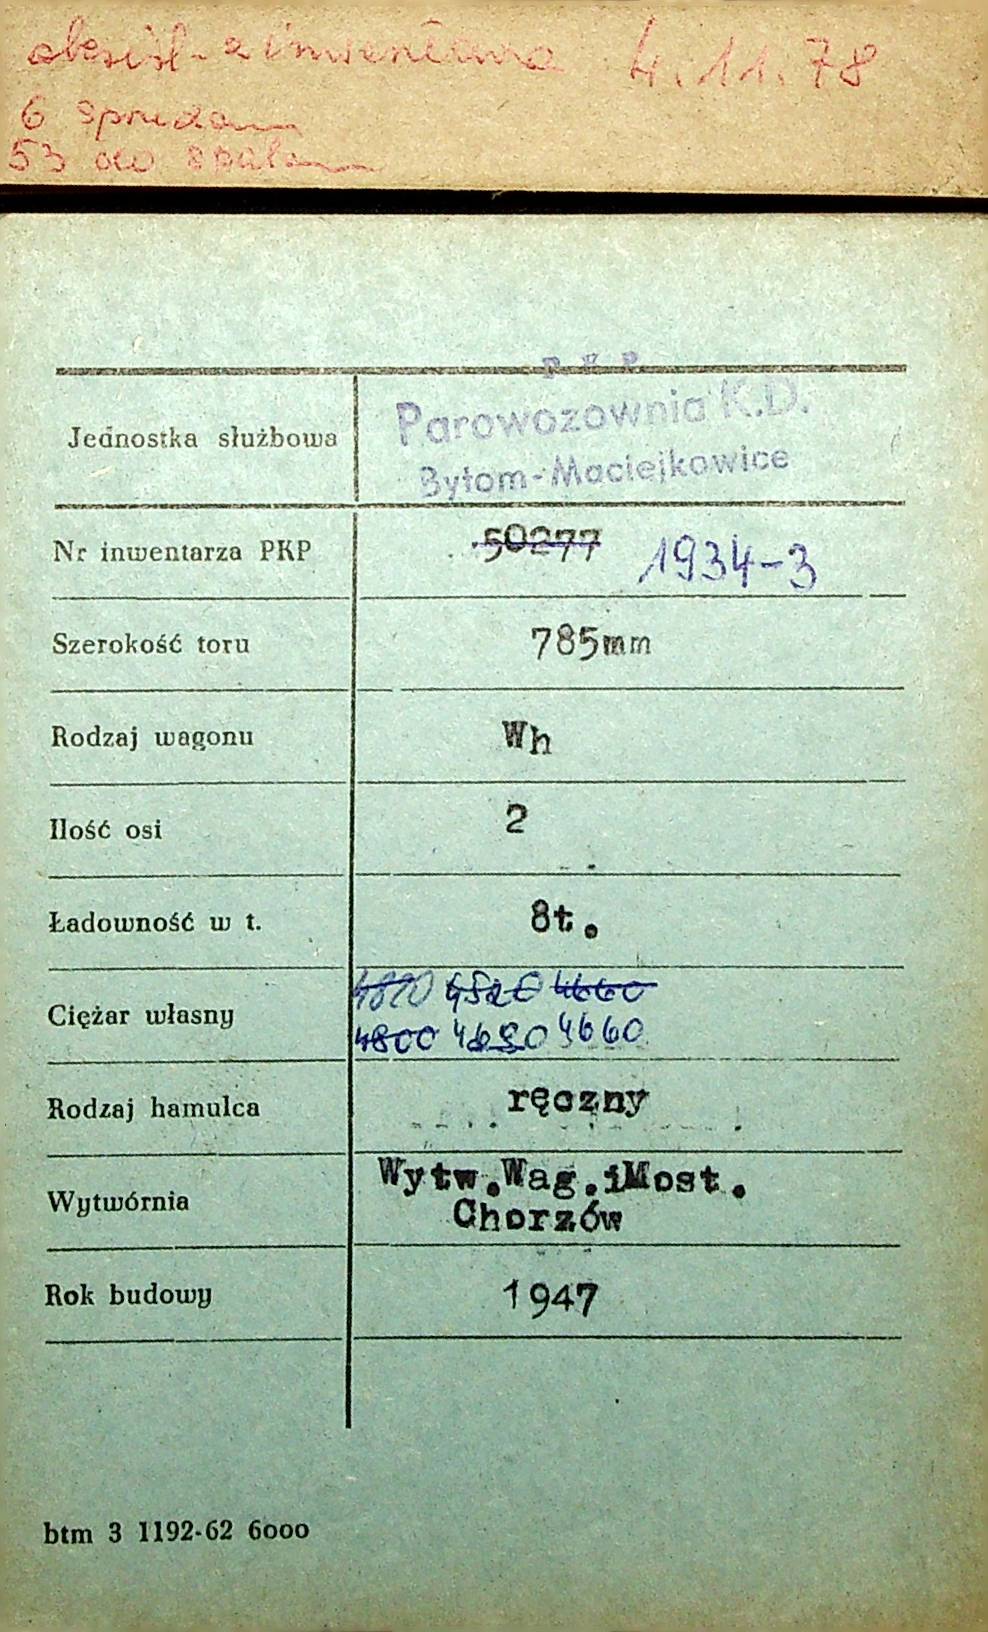 4.11.78
6
53 do
P K P
Parowozownia K.D.
Jednostka służbowa
Bytom-Maciejkowice
Nr inwentarza PKP 50277 1934-3
Szerokość toru 785mm
Rodzaj wagonu Wh
Ilość osi 2
Ładowność w t. 8t.
4520 4660
Ciężar własny
4800 4680 4660
Rodzaj hamulca ręczny
Wytw.Wag.iMost.
Wytwórnia
Chorzów
Rok budowy 1947
btm 3 1192-62 6000